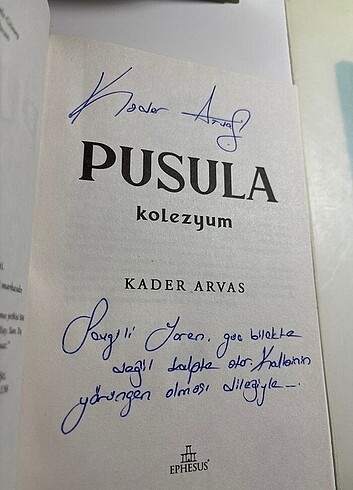 Kader Arvas
PUSULA
kolezyum
KADER ARVAS
Sevgili Yaren, güç bilekte
değil kalpte olur. Kalbinin
yörüngen olması dileğiyle—.
EPHESUS